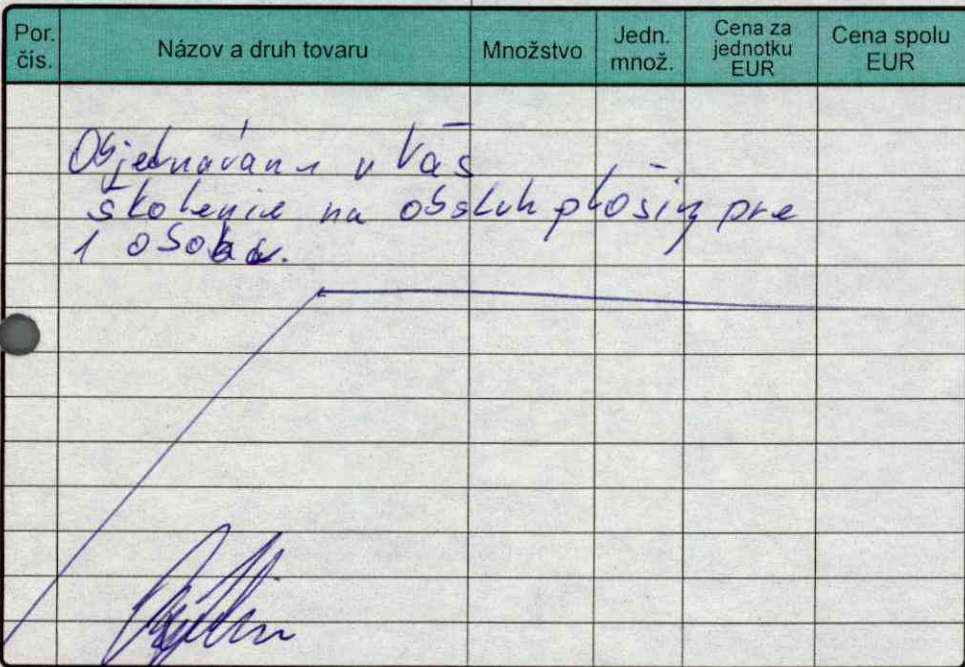 Por. čís. Názov a druh tovaru Množstvo Jedn. množ. Cena za jednotku EUR Cena spolu EUR
Objednávam u Vás
školenie na obsluh plošiny pre
1 osobu.